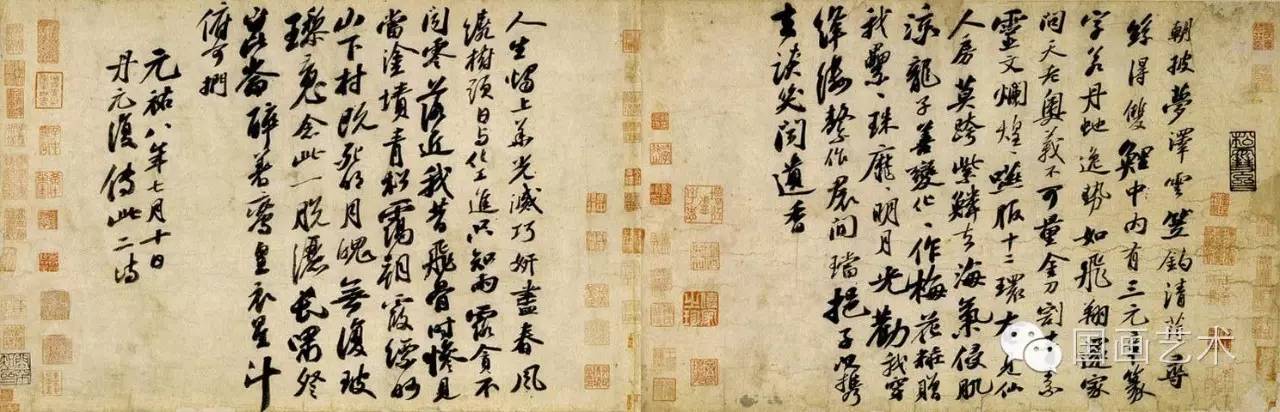 朝披夢澤雲笠釣清茫〻尋
絲得雙鯉中内有三元章篆
字若丹虵逸勢如飛翔還家
問天老奧義不可量金刀割青素
靈文爛煌〻嚥服十二環奄見仙
人房莫跨紫鱗去海氣侵肌
涼龍子善變化〻作梅花粧贈
我纍〻珠靡〻明月光勸我穿
絳縷繫作裙間璫挹子以携
去談笑聞遺香
人生燭上華光滅巧妍盡春風
繞樹頭日與化工進只知雨露貪不
聞零落近我昔飛骨時慘見
當塗墳青松靄朝霞縹緲
山下村既死明月魄無復玻
瓈魂念此一脫灑長嘯登
崑崙醉著鸞皇衣星斗
俯可捫
元祐八年七月十日
丹元復傳此二詩
国画艺术